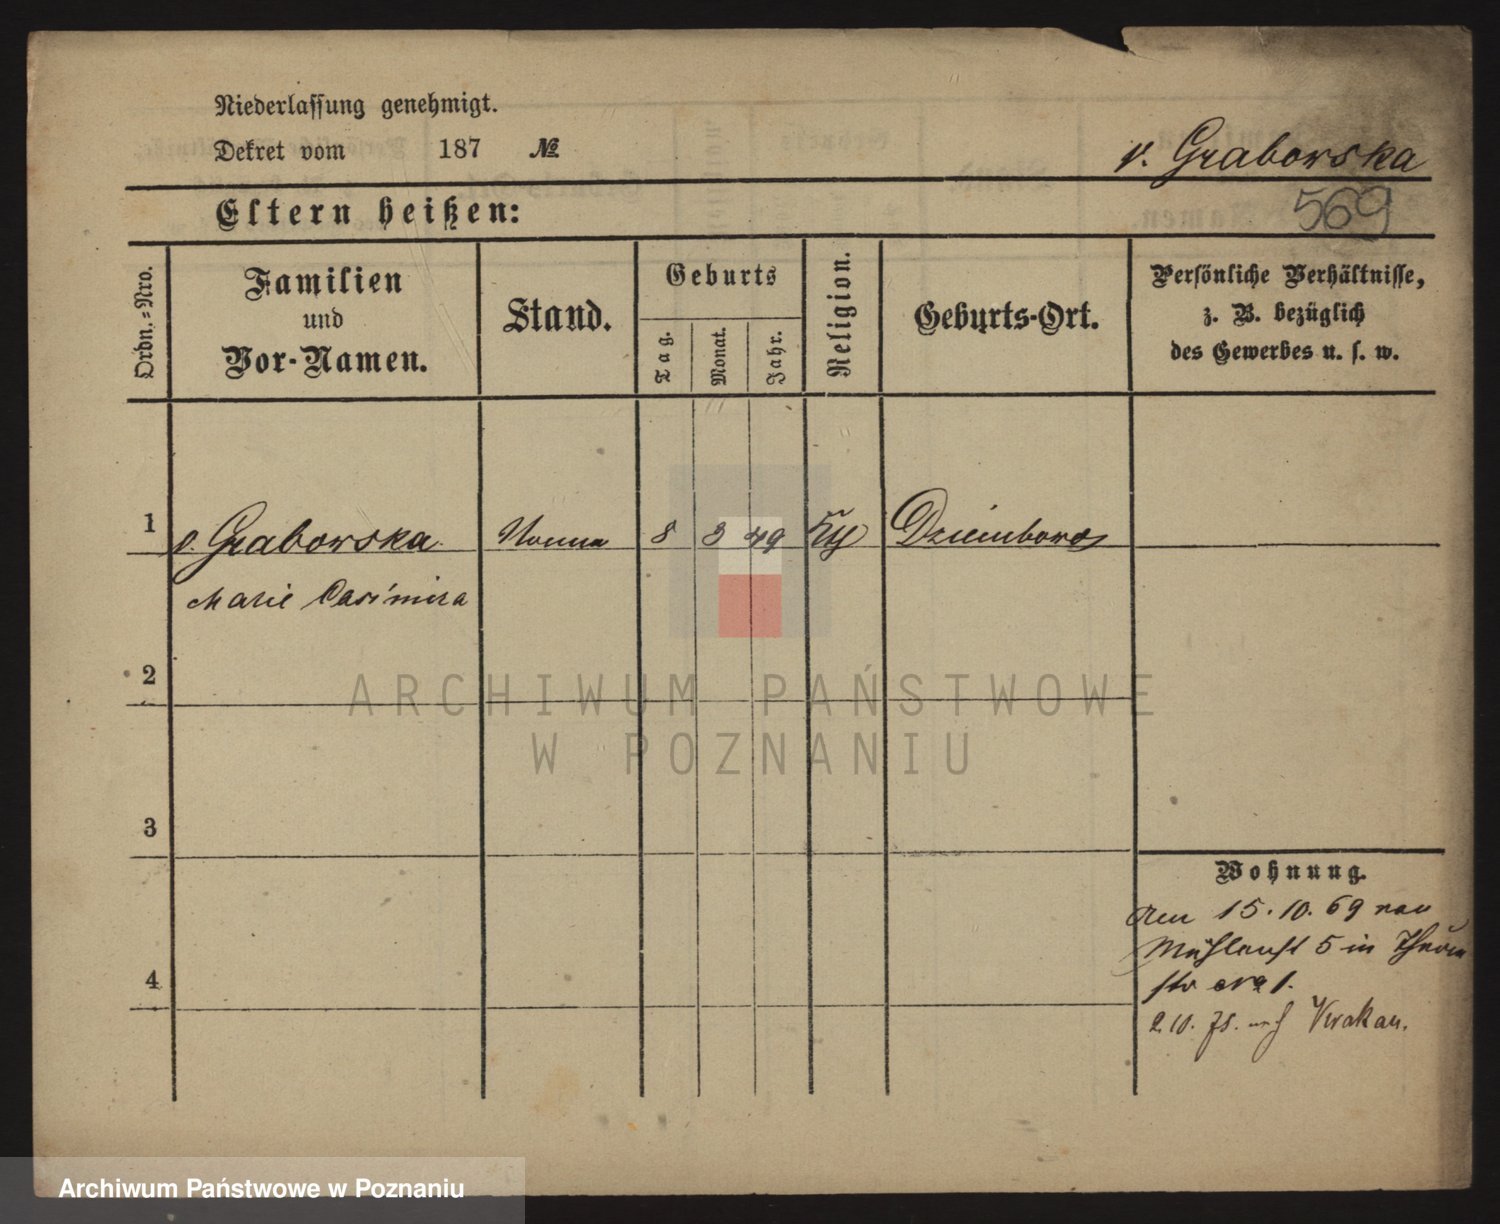 Niederlassung genehmigt.
Dekret vom 187 №
v. Grabowska
569
Eltern heißen:
Ordn.-Nro.
Familien und Vor-Namen.
Stand.
Geburts
Tag.
Monat.
Jahr.
Religion.
Geburts-Ort.
Persönliche Verhältnisse,
z. B. bezüglich
des Gewerbes u. s. w.
1 v. Grabowska Nonne 8 3 49
Marie Casimira
2
3
4
Wohnung.
Am 15. 10. 69 von
Mühlenst 5 in
str No 1.
2.10. 73. nach Krakau.
ARCHIWUM PAŃSTWOWE
W POZNANIU
Archiwum Państwowe w Poznaniu